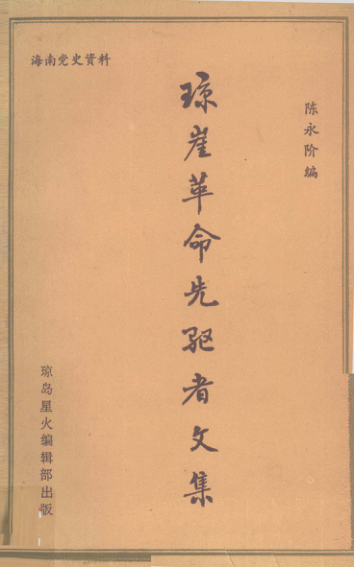 海南党史资料
陈永阶编
琼崖革命先驱者文集
琼岛星火编辑部出版